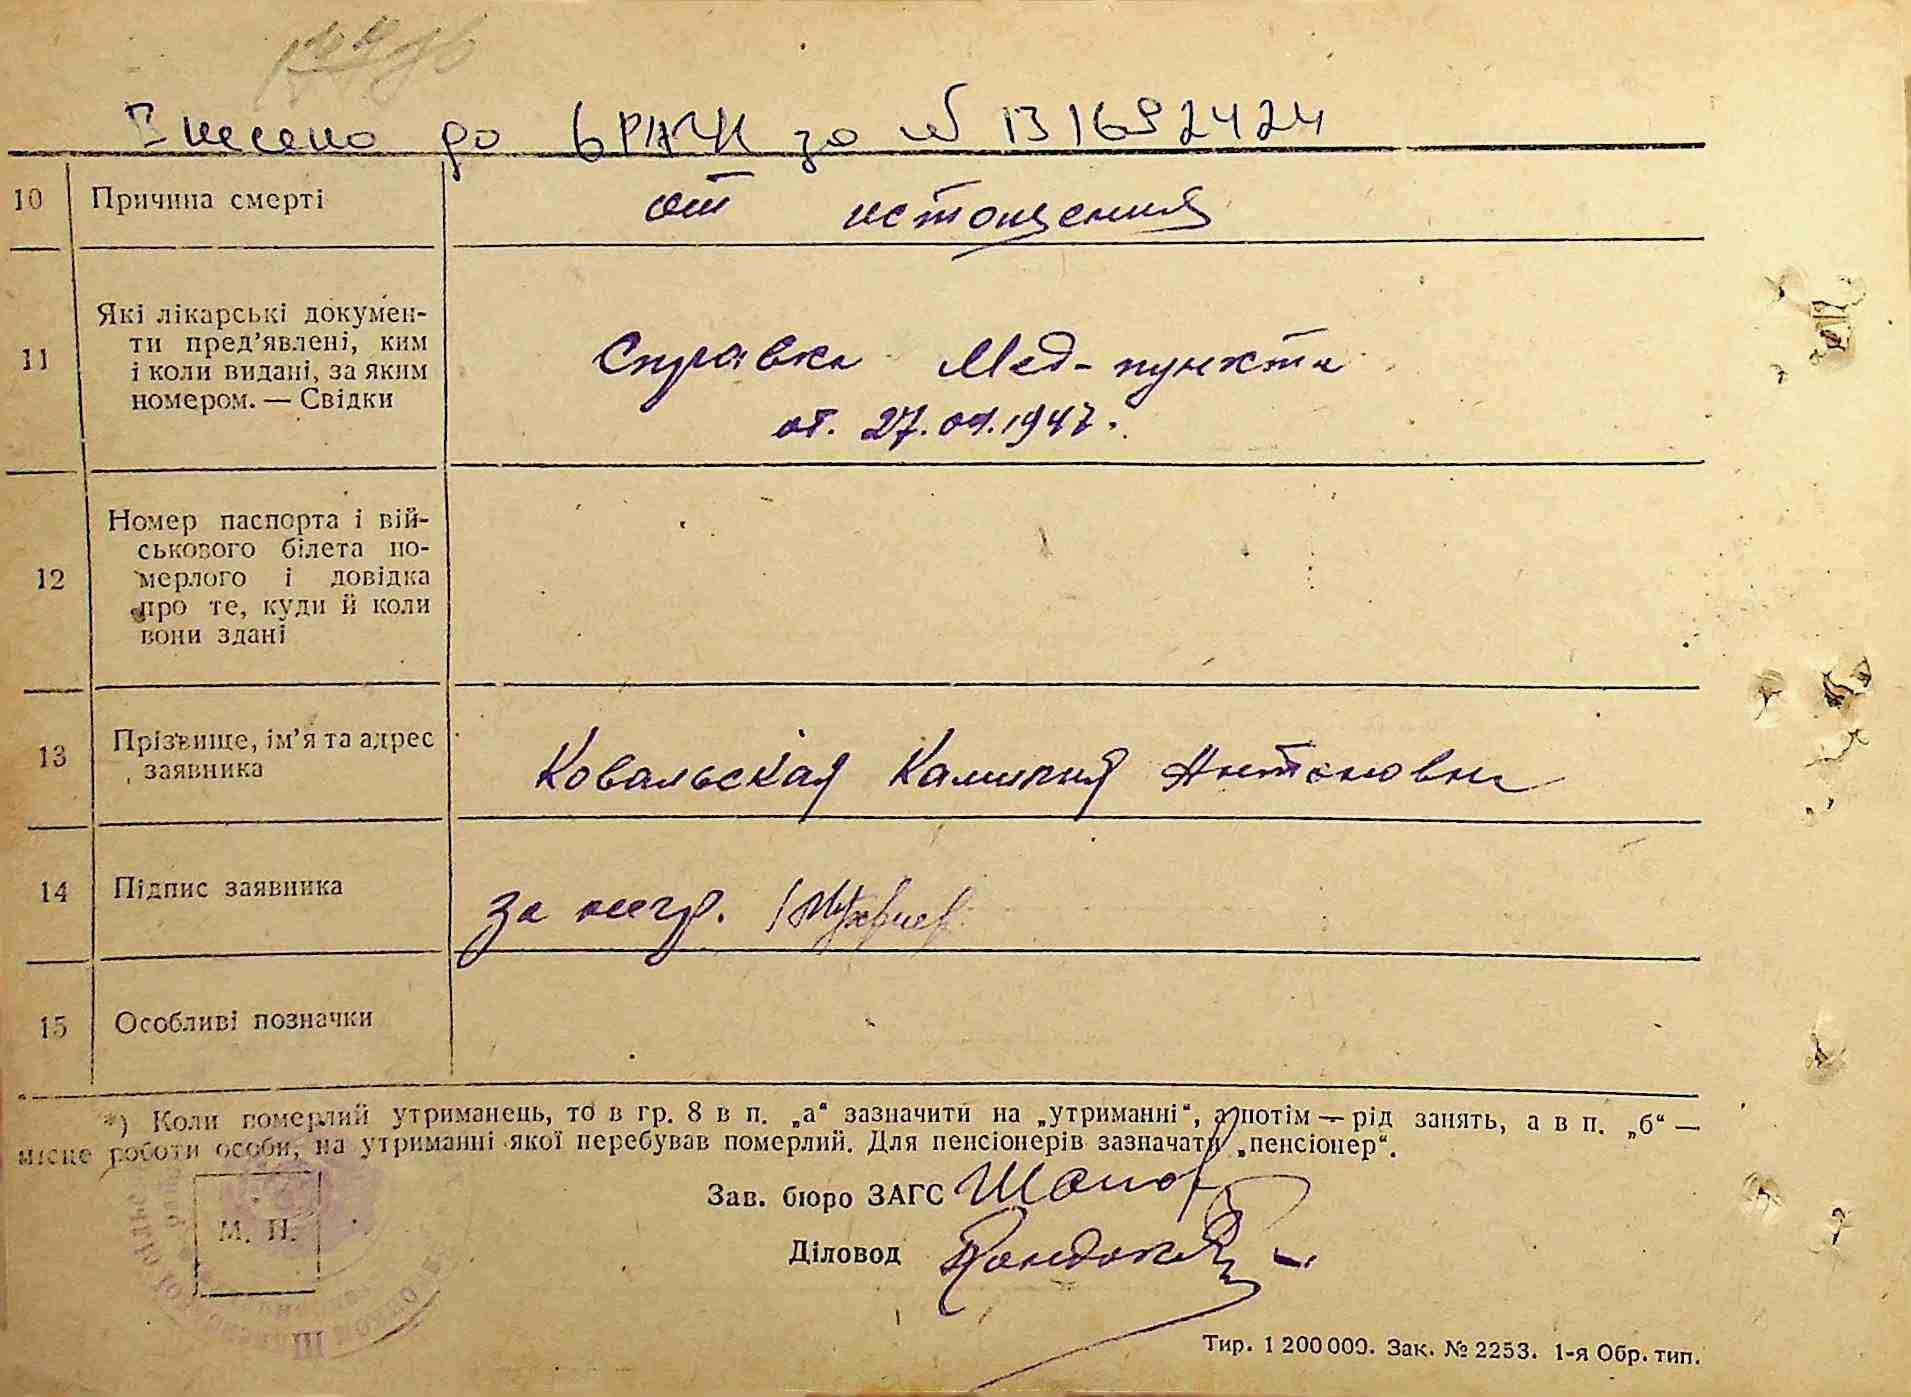 Внесено до ДРАЦС за № 131692424
10 Причина смерті
от истощения
11 Які лікарські докумен-
ти пред'явлені, ким
і коли видані, за яким
номером. — Свідки
Справка Мед-пункта
от. 27.04.1947.
12 Номер паспорта і вій-
ськового білета по-
мерлого і довідка
про те, куди й коли
вони здані
13 Прізвище, ім'я та адрес
заявника
Ковальская Антоновна
14 Підпис заявника
за негр.
15 Особливі позначки
*) Коли померлий утриманець, то в гр. 8 в п. „а“ зазначити на „утриманні“, а потім — рід занять, а в п. „б“ —
місце роботи особи, на утриманні якої перебував померлий. Для пенсіонерів зазначати „пенсіонер“.
Зав. бюро ЗАГС
Діловод
М. П.
Тир. 1 200 000. Зак. № 2253. 1-я Обр. тип.